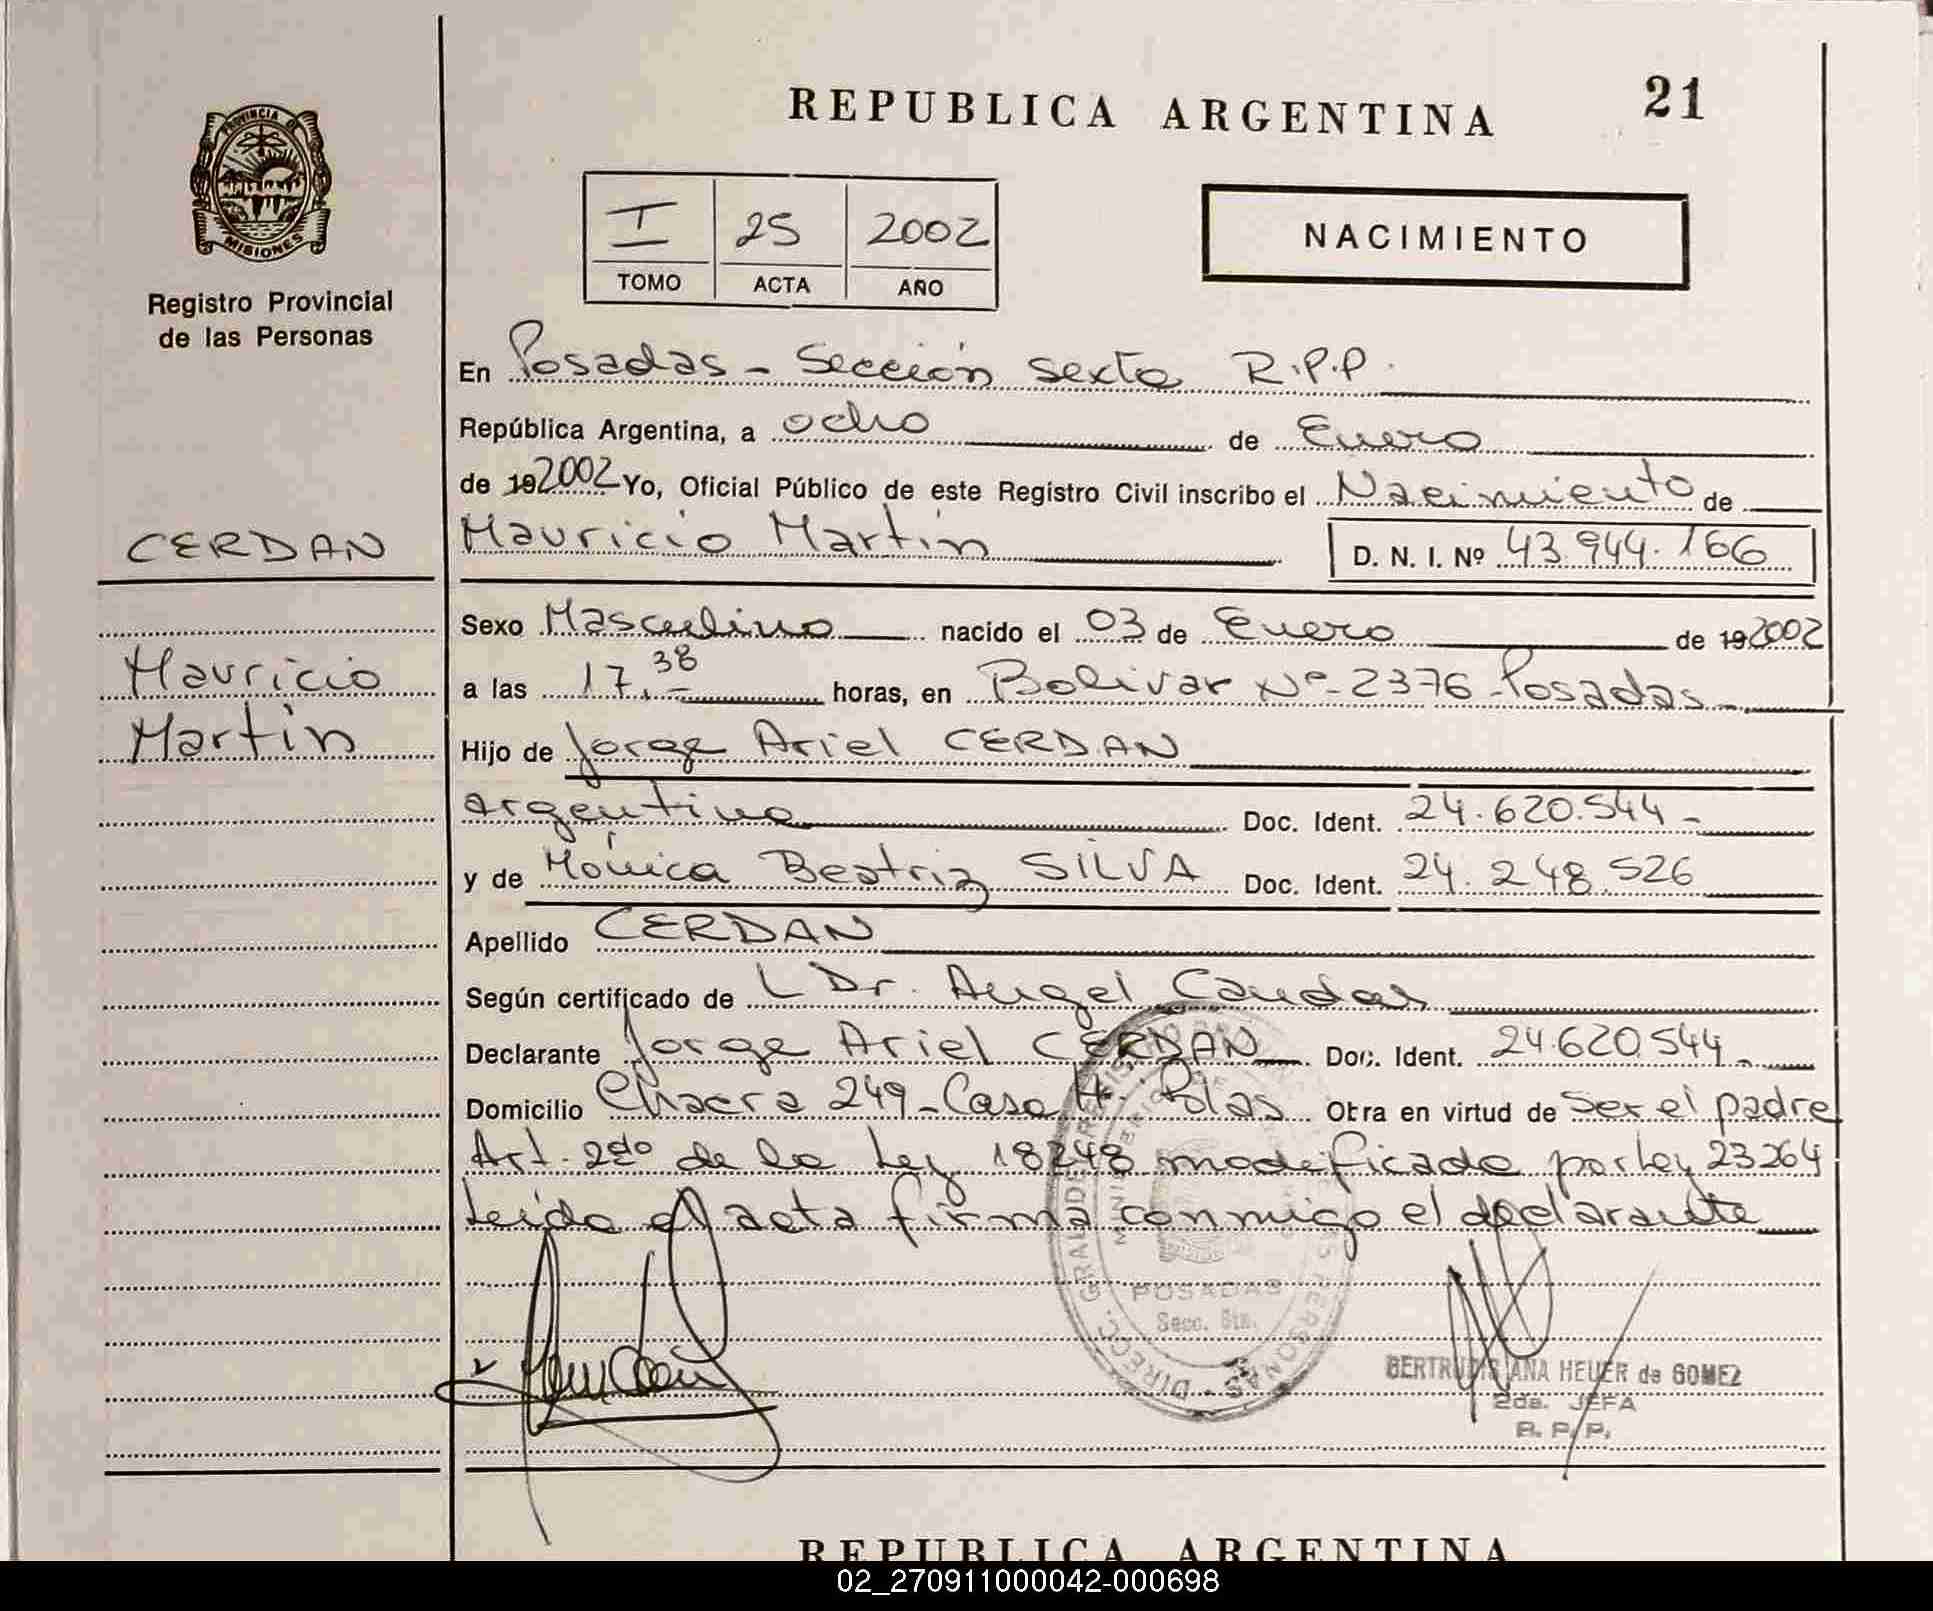 REPUBLICA ARGENTINA
21
PROVINCIA DE
MISIONES
Registro Provincial
de las Personas
I 25 2002
TOMO ACTA AÑO
NACIMIENTO
En Posadas - Sección Sexta R.P.P.
República Argentina, a ocho de Enero
de 19 2002 Yo, Oficial Público de este Registro Civil inscribo el Nacimiento de
CERDAN
Mauricio
Martin
Mauricio Martin D. N. I. Nº 43.944.166
Sexo Masculino nacido el 03 de Enero de 19 2002
a las 17.38 horas, en Bolivar Nº 2376 - Posadas
Hijo de Jorge Ariel CERDAN
argentino Doc. Ident. 24.620.544 -
y de Mónica Beatriz SILVA Doc. Ident. 24.248.526
Apellido CERDAN
Según certificado de L Dr. Angel
Declarante Jorge Ariel CERDAN Doc. Ident. 24.620.544 -
Domicilio Chacra 249 - Casa Blas Obra en virtud de Ser el padre
Art. 2do de la Ley 18248 modificado por Ley 23264
Leída el acta firma conmigo el declarante
DIRECC. GRAL DE PERSONAS
POSADAS
Secc. 6ta.
GERTRUDIS ANA HEUER de GOMEZ
2da. JEFA
R. P. P.
REPUBLICA ARGENTINA
02_270911000042-000698